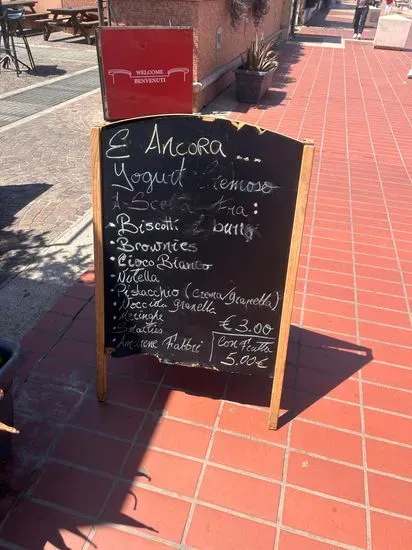 WELCOME
BENVENUTI
E ANCORA ...
Yogurt Cremoso
A Scelta Tra :
• Biscotti
• Brownies
• Cioco Bianco
• Nutella
• Pistacchio (crema/granella)
• Nocciola granella
• Meringhe
• Smarties
• Amarene Fabbri
€ 3.00
Con Frutta
5.00€